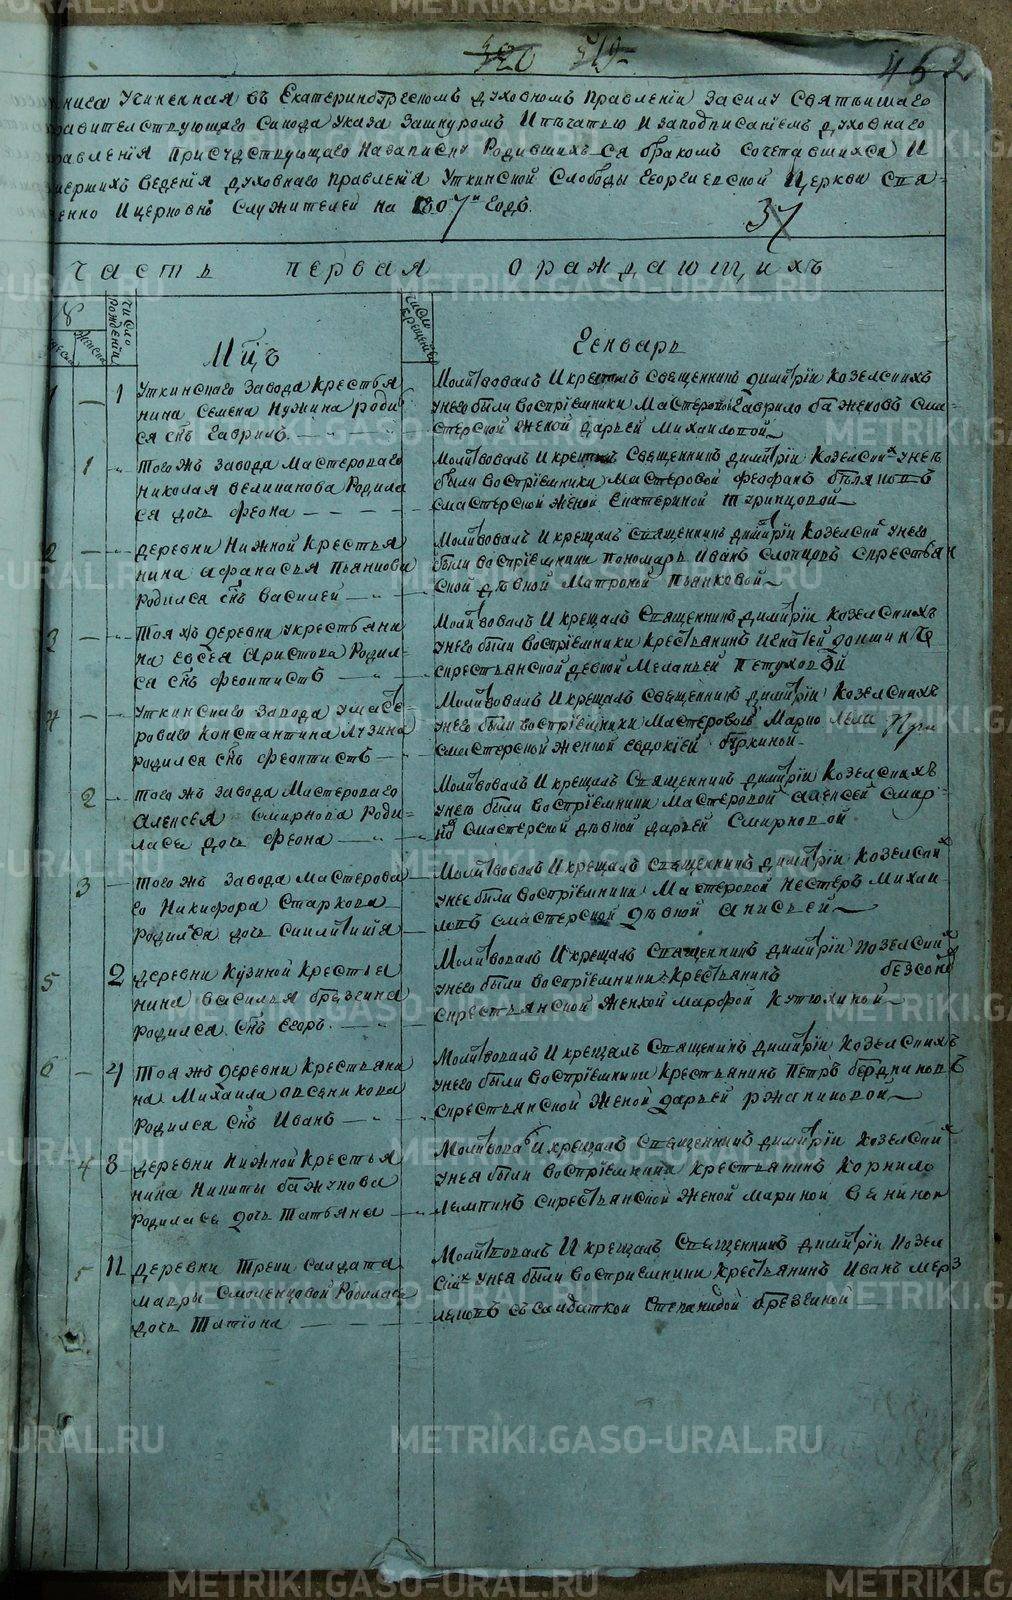 462
книга Учиненная въ Екатеринбургскомъ духовномъ правленіи Засилу Святѣишаго
равителствующаго Синода Указа Зашнуромъ Ипѣчатью Изаподписаніемъ духовнаго
равленія Присудствующаго Назаписку Родившихъ-ся бракомъ сочетавшихся И
умершихъ Веденія духовнаго правленія Уткинской Слободы Георгиевской Церкви Свя=
щенно Ицерковнo Служителей на 1807й Годъ.
37
Часть первая Ораждающихъ
число рожденіи
число крещенія
женска
Мцъ Генварь
1 — 1 Уткинскаго Завода Крестья
нина Семена Нужина роди
ся снъ Гаврилъ
Молитвовалъ И крестилъ Священникъ Димитріи Козелскихъ
унего были воспріемники Мастеровой Гаврило баженовъ Сма-
стерской Женой Дарьей Михаиловой
1 Тогожъ Завода Мастероваго
Николая Великанова Родила
ся дочь феона
Молитвовалъ И крестилъ Священникъ Димитріи Козелскихъ унея
были воспріемники Мастеровой Феофанъ
Смастерской Женой Екатериной
2 — деревни Нижной Крестья
нина Афанасья Пьянкова
родился снъ Василеи
Молитвовалъ И крещалъ Священникъ Димитріи Козелскихъ унего
были воспріемники пономарь Иванъ Слопцовъ Скрестьян
ской дѣвкой Матроной Пьянковой
3 — Тояжъ деревни Укрестьяни
на Евсея Аристова Родил-
ся снъ феоктистъ
Молитвовалъ И крещалъ Священникъ Димитріи Козелскихъ
унего были воспріемники Крестьянинъ Игнатей
скрестьянской девкой Меланьей Петуховой
4 — Уткинскаго Завода Умасте-
роваго Константина Лузина
родился снъ феоктистъ
Молитвовалъ И крещалъ Священникъ Димитріи Козелскихъ
унего были воспріемники Мастеровой Марко
смастерской женкой Евдокіей буркиной
2 Тогожъ Завода Мастероваго
Алексея Смирнова Роди-
лась дочь феона
Молитвовалъ И крещалъ Священникъ Димитріи Козелскихъ
унею были воспріемники Мастеровой Алексей Смир-
новъ Смастерской дѣвкой Дарьей Смирновой
3 Тогожъ Завода Мастерова
го Никифора Старкова
родилася дочь Синклитикія
Молитвовалъ И крещалъ Священникъ Димитріи Козелских
унея были воспріемники Мастеровой Нестеръ Михаи
ловъ Смастерской дѣвкой Анисьей
5 2 деревни Кузиной Крестья
нина Василья брезгина
родился снъ Егоръ
Молитвовалъ И крещалъ Священникъ Димитріи Козелских
унего были воспріемники Крестьянинъ безсоно
скрестьянской Женкой Марфой Кутюхиной
6 — 4 Тояжъ деревни Крестьяни
на Михаила Овсяникова
родился снъ Иванъ
Молитвовалъ И крещалъ Священикъ Димитріи Козелскихъ
унего были воспріемники Крестьянинъ Петръ бердниковъ
скрестьянской Женой дарьей ржаниковой
4 8 деревни Нижной Крестья
нина Никиты бажукова
родилась дочь Татьяна
Молитвова И крещалъ Священникъ Димитріи Козелских
унея были воспріемники Крестьянинъ Корнило
Лямпинъ скрестьянской Женой Мариной
5 11 деревни Треки Салдата
Мавры Смоленцовой Родилась
дочь Татіона
Молитвовалъ И крещалъ Священникъ Димитріи Козел
скихъ унея были восприемники Крестьянинъ Иванъ Мерз
ляковъ Съ салдаткой Степанидой брезгиной